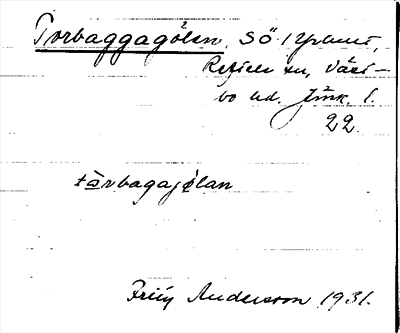 Torbaggagölen, SÖ. i
Reftele sn, Väst-
bo hd. Jönk. l.
22.
tårbagajølan
Frity Andersson 1931.